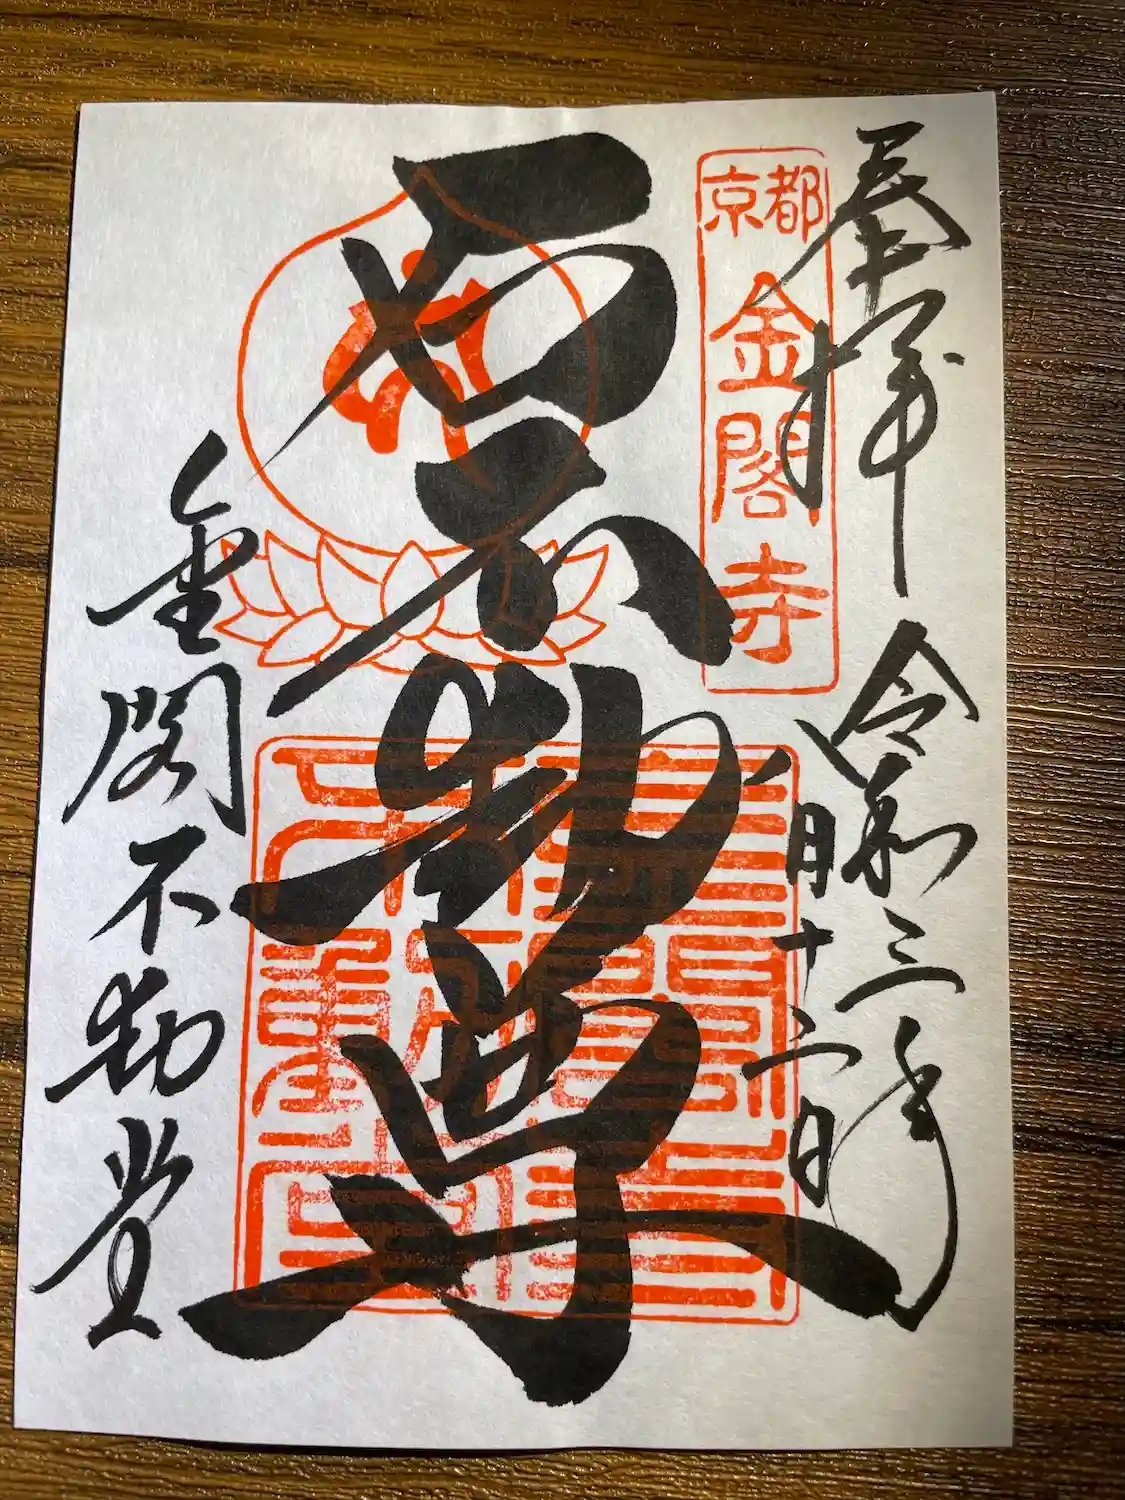 奉拝
令和三年
八月十 日
京都
金閣寺
石不動尊
金閣不動堂